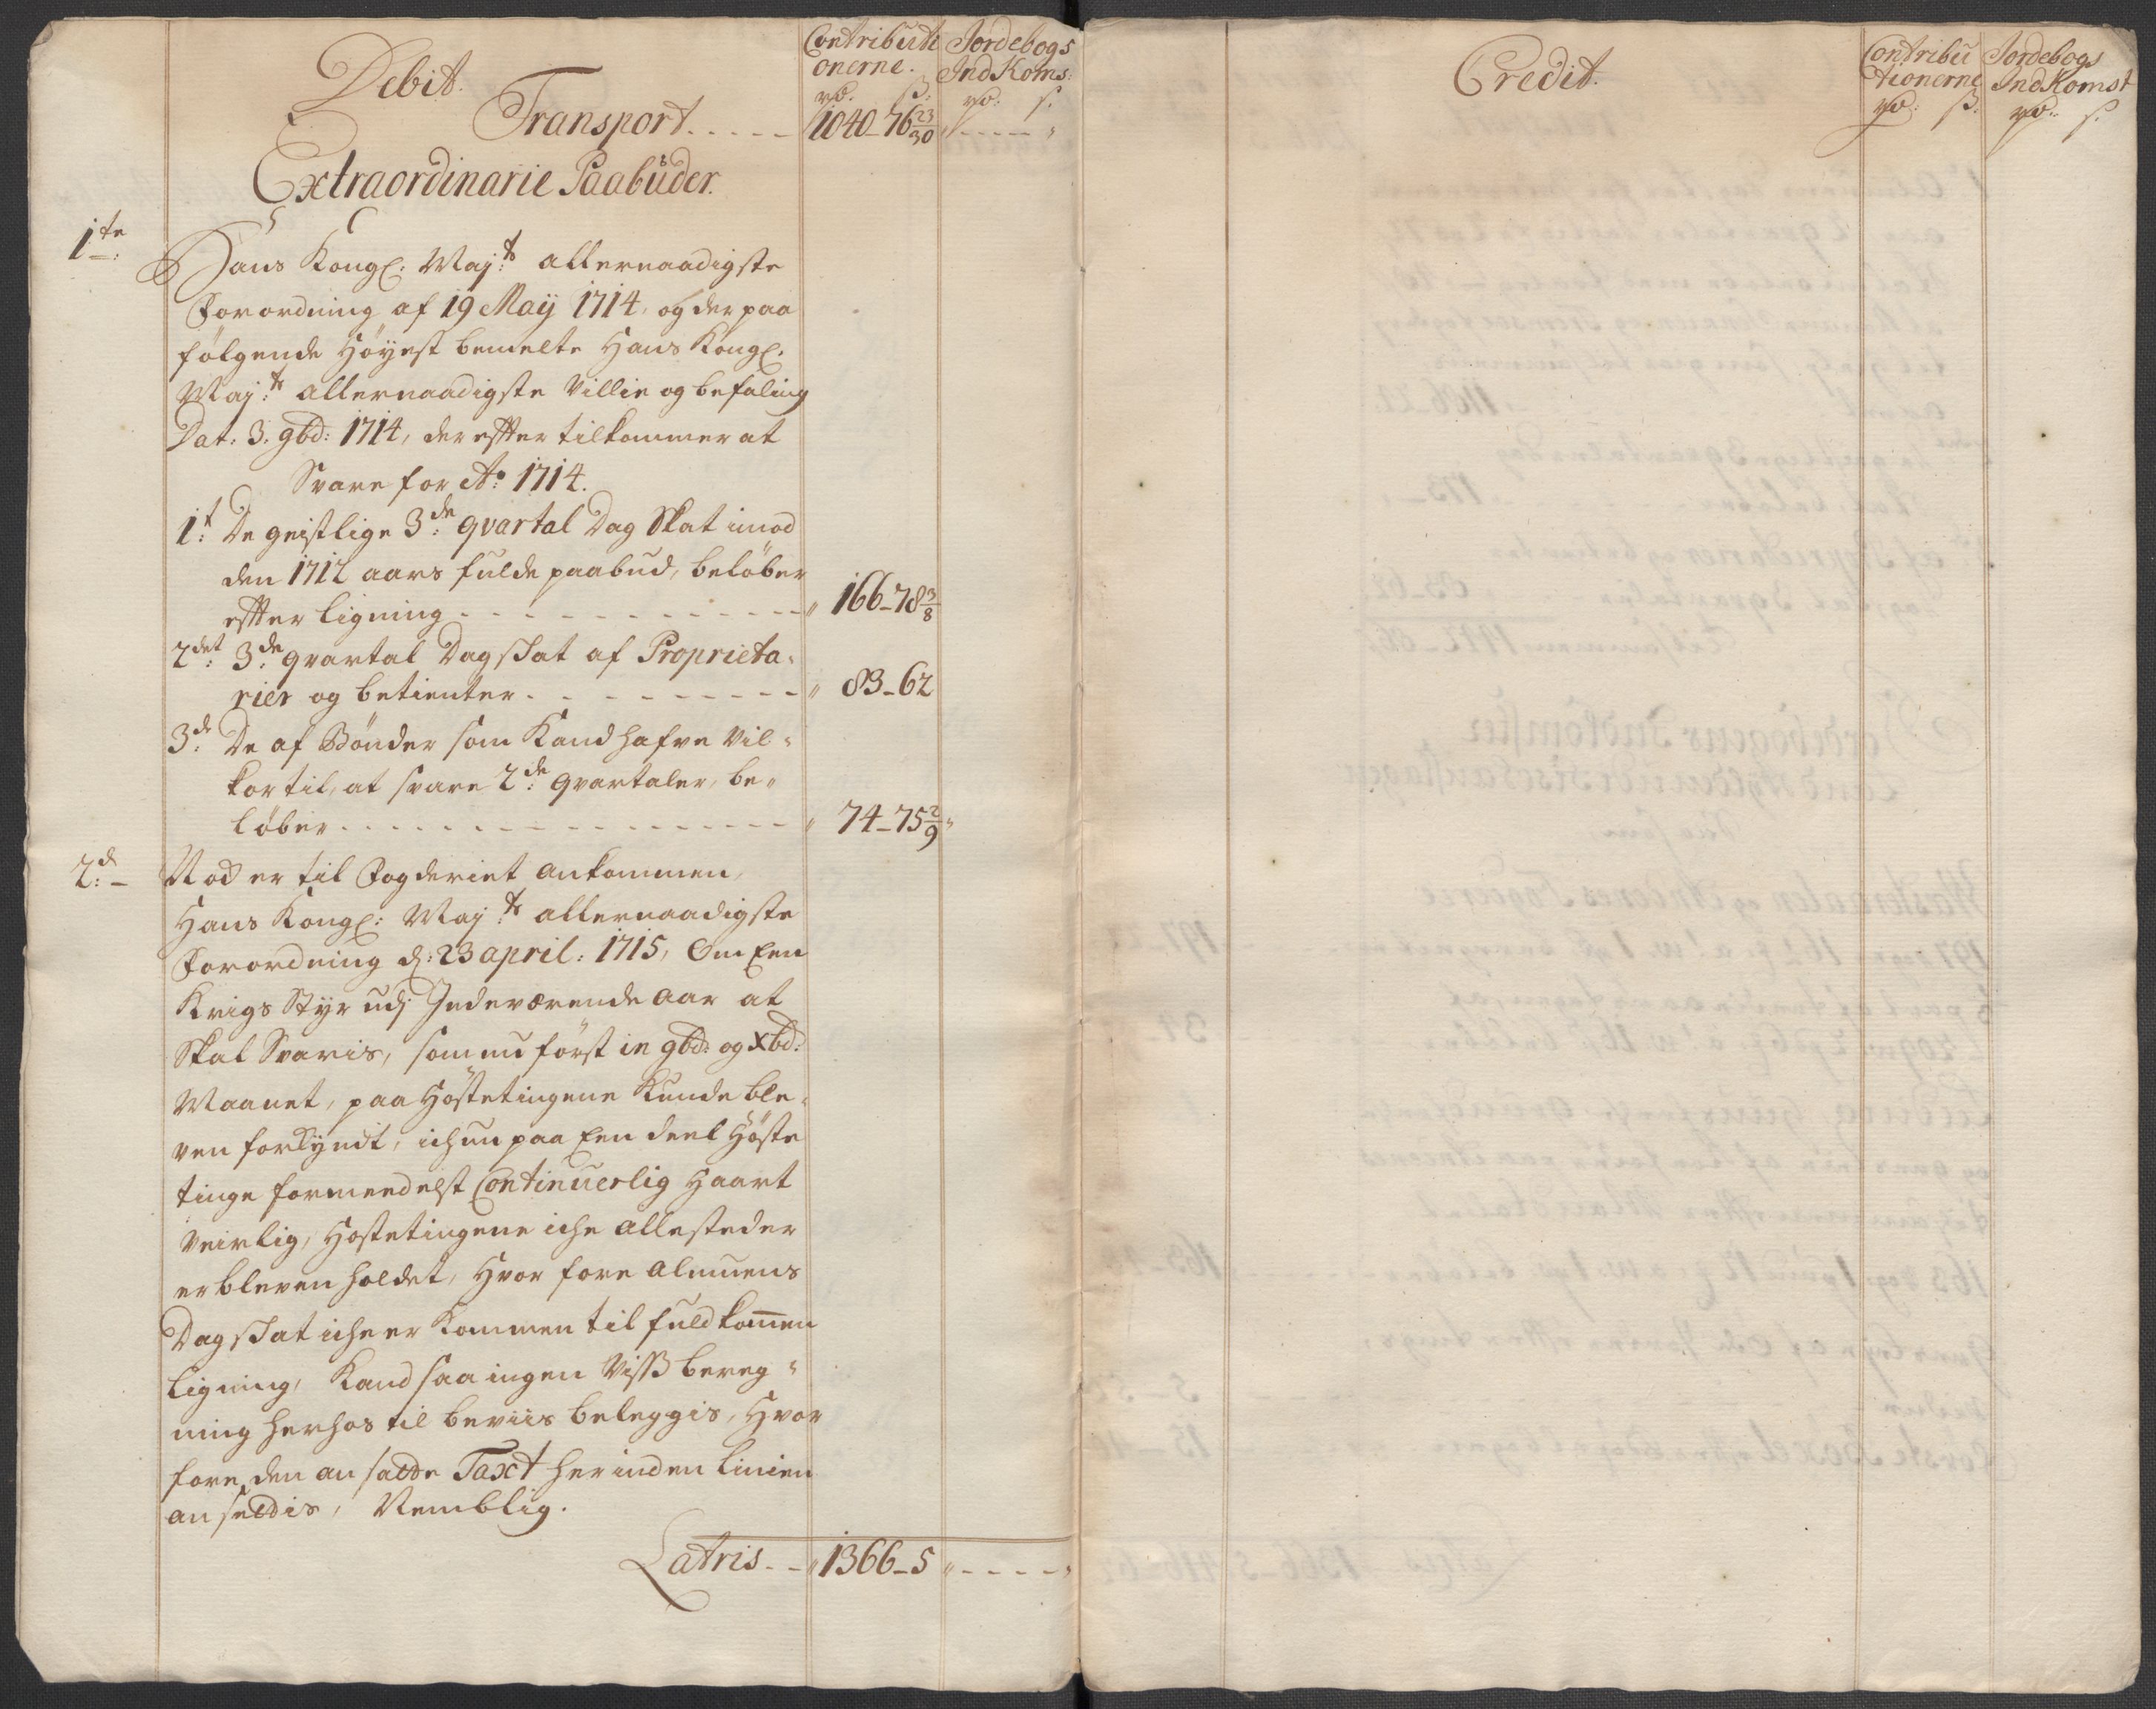 Debit.
Contributi Jordebogs
onerne. IndKoms:
rd. ß: rd: s.
Transport. . . . . 1040-76 23/30
Extraordinarie Paabüder.
1te:
Hans Kongl: Maj:ts allernaadigste
Forordning af 19 Maÿ 1714, og der paa
følgende Höyest bemelte Hans Kongl.
Maj:ts allernaadigste Villie og befaling
Dat: 3. 9bd: 1714, der effter tilkommer at
Svare for Ao: 1714.
1t: De geistlige 3de: qvartal Dag Skat imod
den 1712 aars fulde paabud, beløber
effter ligning - - - - - - 166-78 3/8
2det: 3de: qvartal Dagskat af Proprieta-
rier og betienter - - - - - - 83-62
3de: De af Bönder som Kand hafve Vil-
kor til, at svare 2de: qvartaler, be-
løber - - - - - - 74-75 2/9
2d:- Nock er til Fogderiet ankommen,
Hans Kongl: Maj:ts allernaadigste
Forordning d: 23 april: 1715, Om Een
Krigs Styr udj Indeværende aar at
Skal Svaris, som nu först in 9bd: og Xbd:
Maanet, paa Höstetingene Kunde ble-
ven forkyndt, ichun paa Een deel Höste
tinge formedelst Continuerlig Haart
Veirlig, Höstetingene iche allesteder
er bleven holdet, Hvor fore Almuens
Dagskat iche er Kommen til fuldkom̄en
Ligning, Kand saa ingen Viss bereg-
ning herhos til beviis beleggis, Hvor
fore den ansatte Taxt her inden Linien
ansettis, Nemblig.
Latris - - 1366-5 - - - -
Credit.
Contribu Jordebogs
tionerne IndKomst
rd: ß. rd: s.